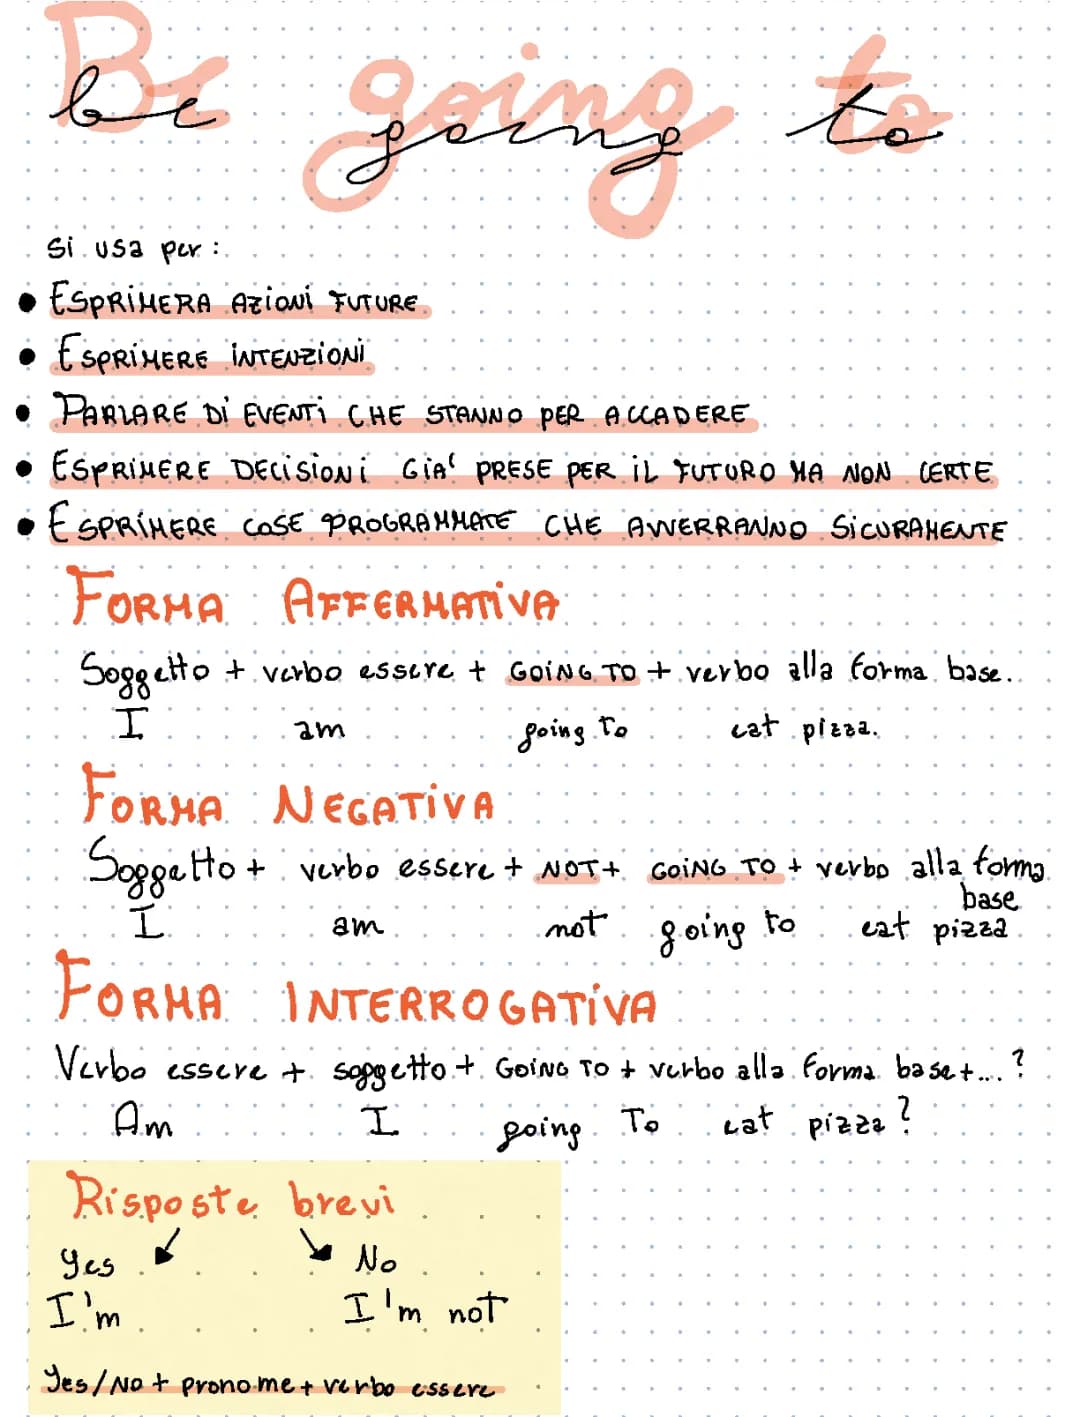 Be going to
be going to
Si usa per:
• ESPRIMERA AZIONI FUTURE
• ESPRIMERE INTENZIONI
• PARLARE DI EVENTI CHE STANNO PER ACCADERE
• ESPRIMERE DECISIONI GIA' PRESE PER IL FUTURO MA NON CERTE
• ESPRIMERE COSE PROGRAMMATE CHE AVVERRANNO SICURAMENTE
FORMA AFFERMATIVA
Soggetto + verbo essere + GOING TO + verbo alla forma base.
I am going to eat pizza.
FORMA NEGATIVA
Soggetto + verbo essere + NOT + GOING TO + verbo alla forma
base
I am not going to eat pizza
FORMA INTERROGATIVA
Verbo essere + soggetto + GOING TO + verbo alla forma base+...?
Am I going To eat pizza?
Risposte brevi
Yes No
I'm I'm not
Yes/No + pronome + verbo essere